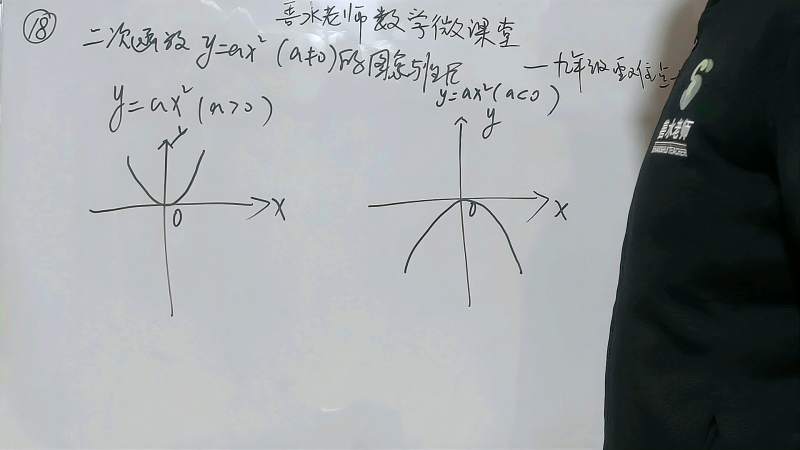 ⑱
善水老师数学微课堂
二次函数 y=ax² (a≠0)的图象与性质
一九年级重难点
y=ax²(a>0)
y=ax²(a<0)
y
y
0
x
0
x
S
善水老师